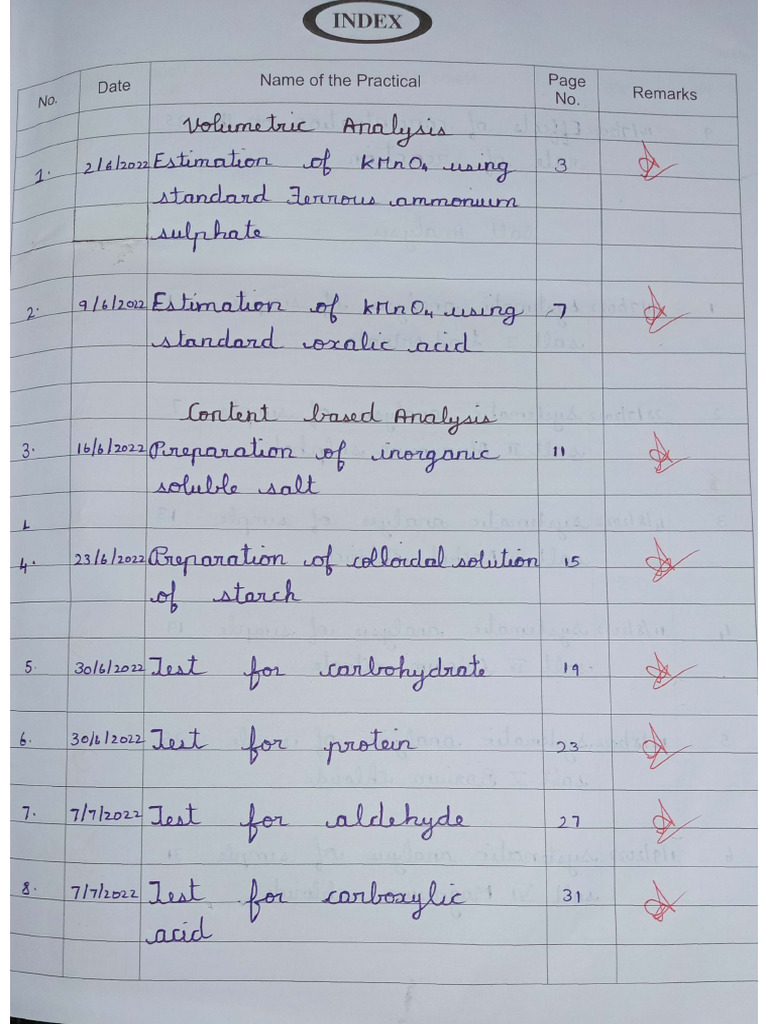 INDEX
No. Date Name of the Practical Page No. Remarks
Volumetric Analysis
1. 2/6/2022 Estimation of KMnO4 using 3
standard Ferrous ammonium
sulphate
2. 9/6/2022 Estimation of KMnO4 using 7
standard oxalic acid
Content based Analysis
3. 16/6/2022 Preparation of inorganic 11
soluble salt
4. 23/6/2022 Preparation of colloidal solution 15
of starch
5. 30/6/2022 Test for carbohydrate 19
6. 30/6/2022 Test for protein 23
7. 7/7/2022 Test for aldehyde 27
8. 7/7/2022 Test for carboxylic 31
acid